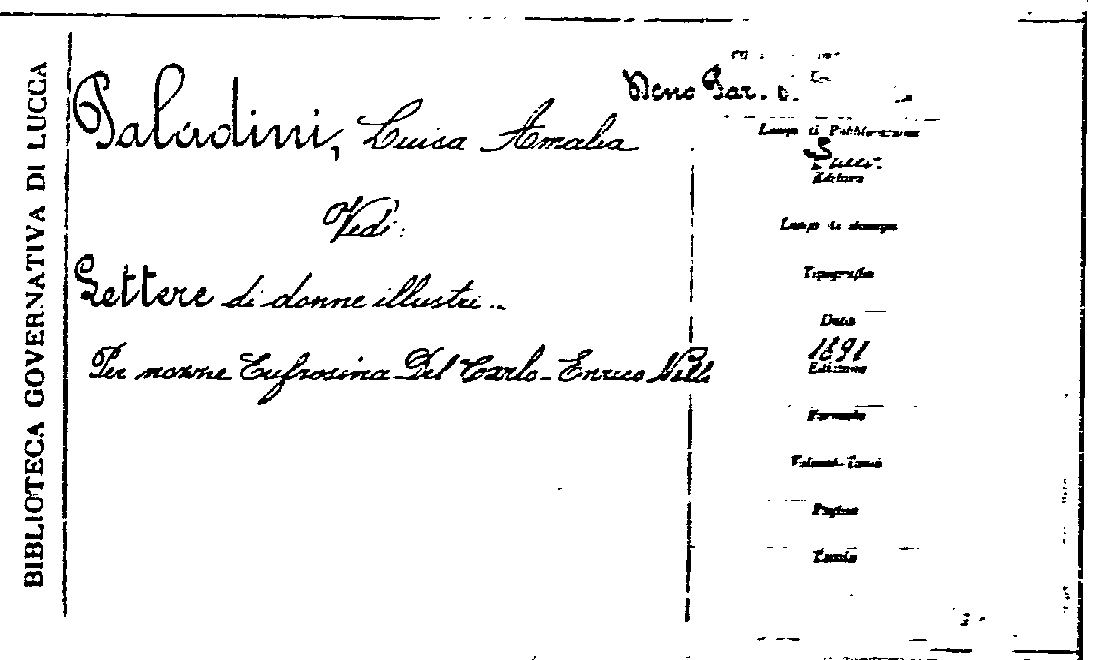 BIBLIOTECA GOVERNATIVA DI LUCCA
Paladini, Luisa Amalia
Vedi:
Lettere di donne illustri..
Per nozze Eufrosina Del Carlo - Enrico
Luogo di Pubblicazione
Editore
Luogo di stampa
Tipografia
Data
1891
Edizione
Formato
Volumi-Tomi
Pagine